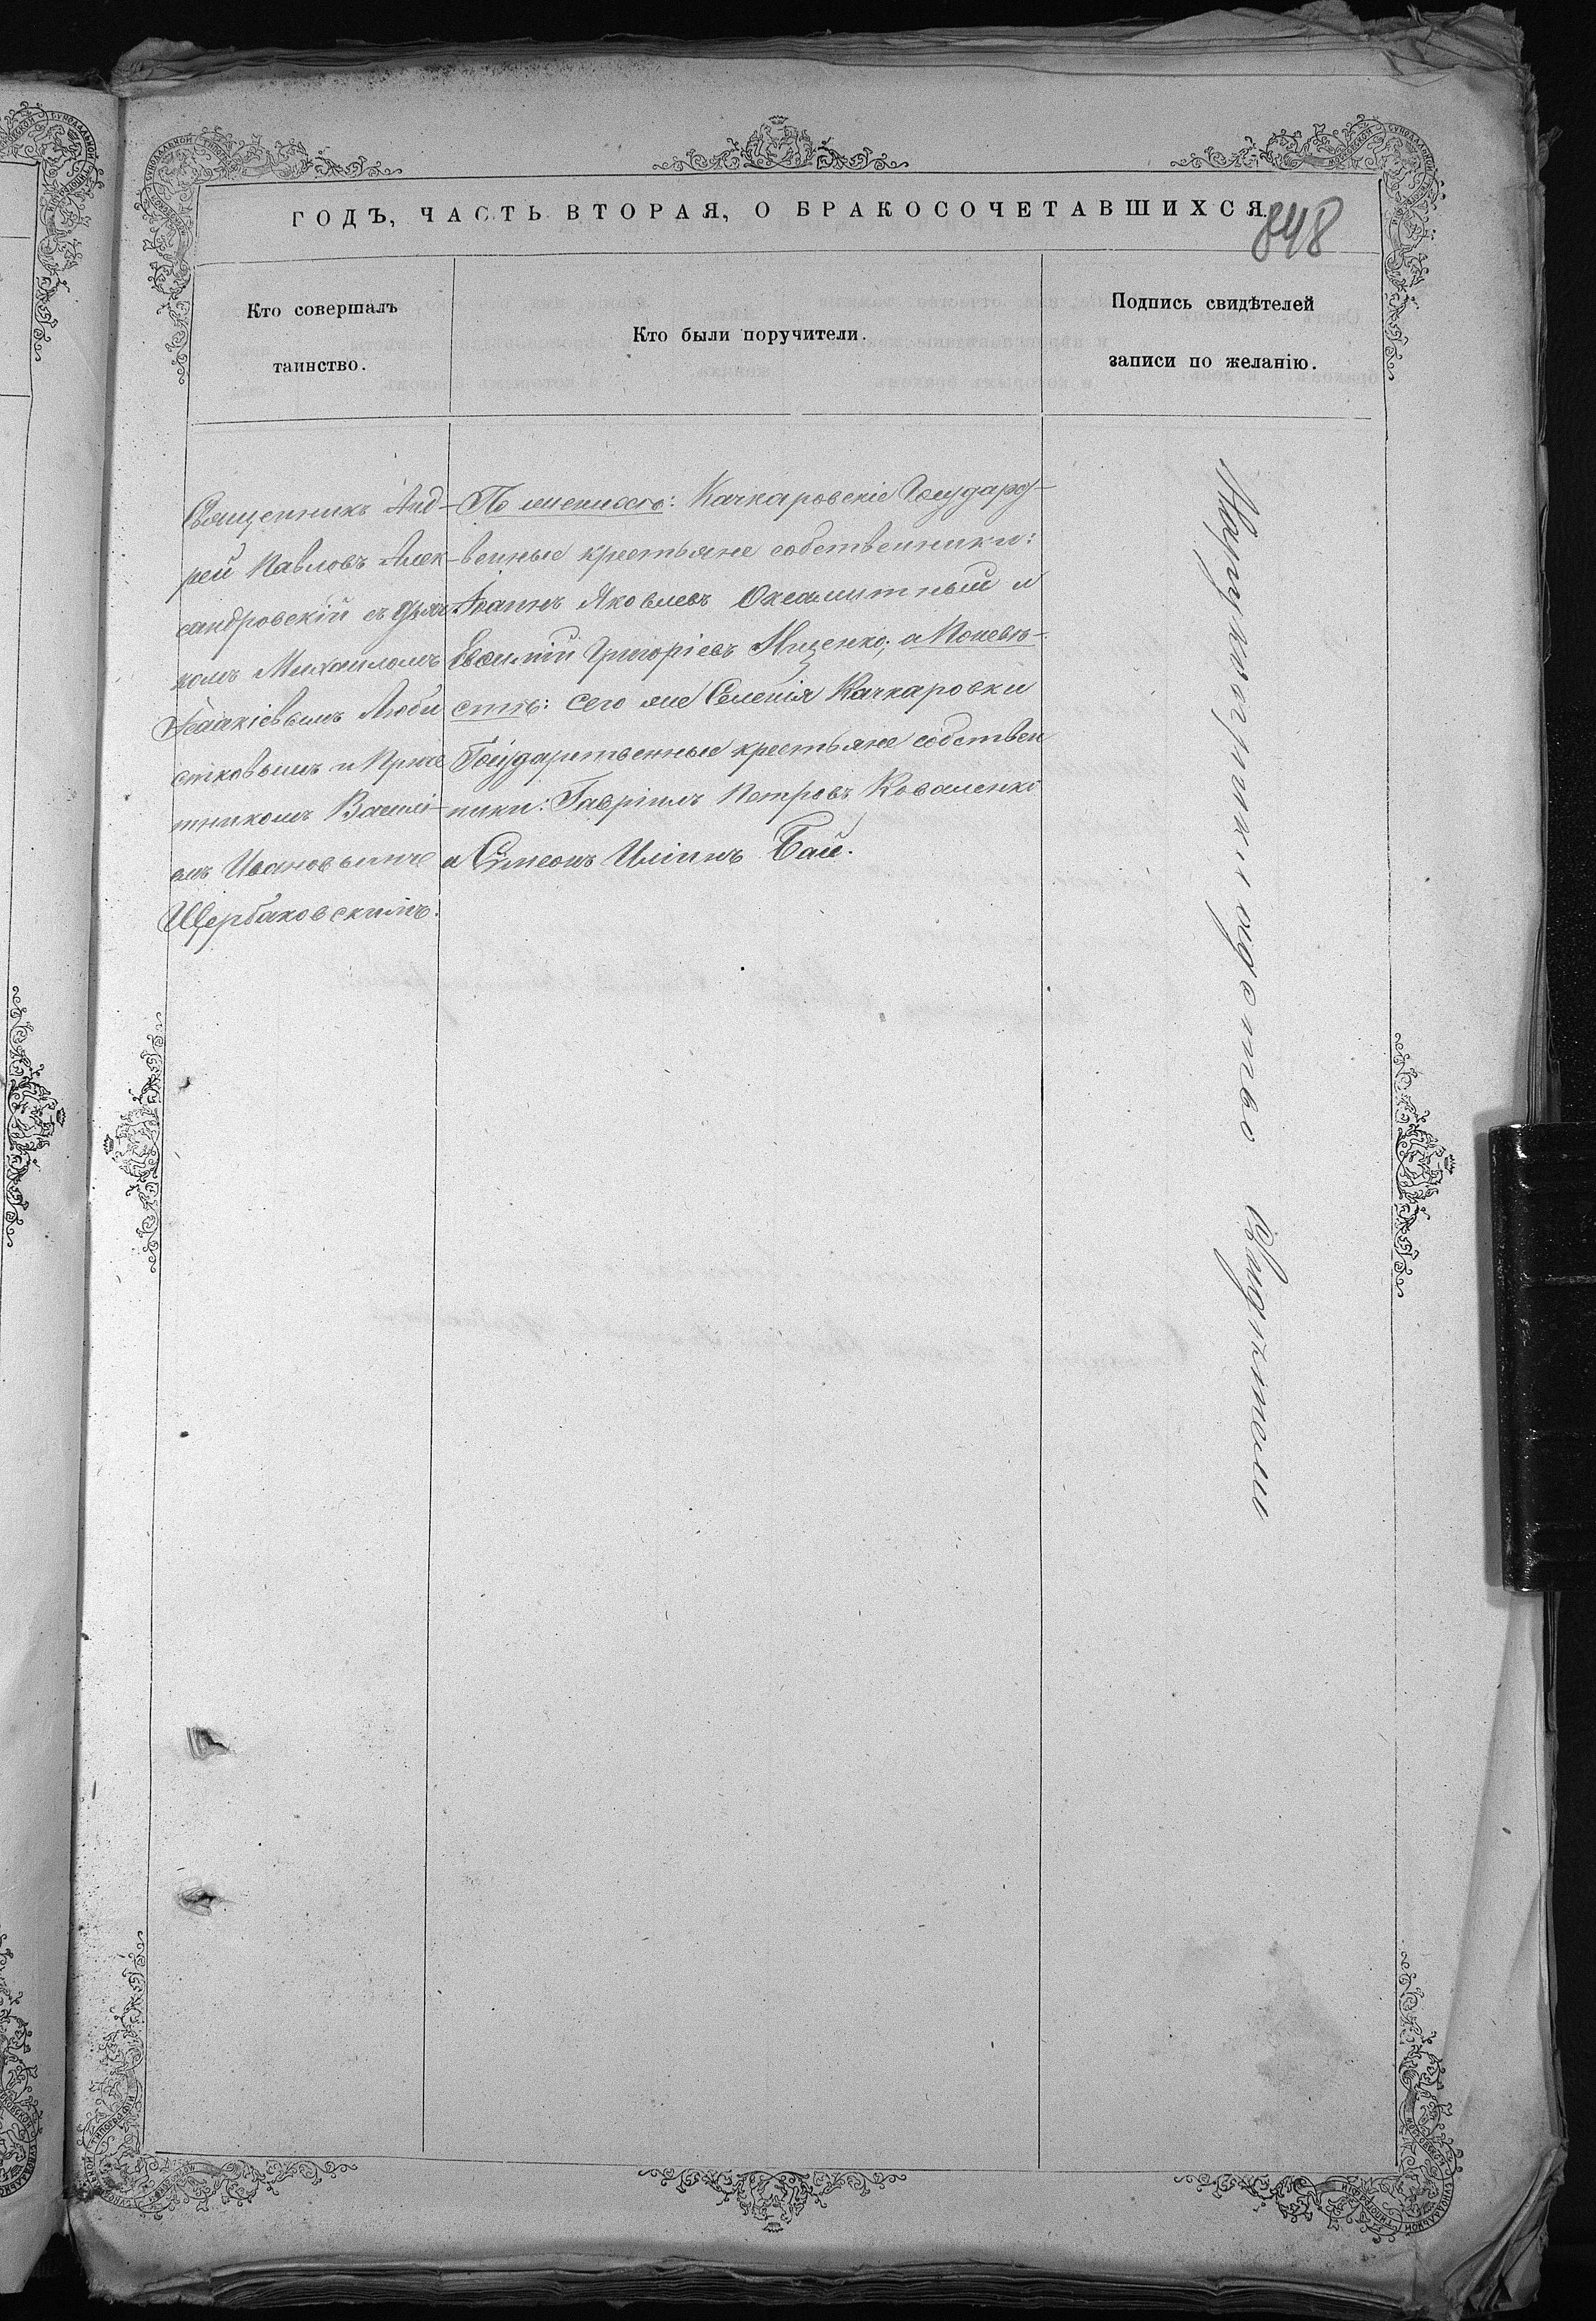 ГОДЪ, ЧАСТЬ ВТОРАЯ, О БРАКОСОЧЕТАВШИХСЯ.
848
Кто совершалъ
таинство.
Кто были поручители.
Подпись свидѣтелей
записи по желанію.
Священникъ Анд-
рей Павловъ Алек-
сандровскій съ Дьяч
комъ Михаиломъ
Исаакіевымъ Люби
стковымъ и Приче
тникомъ Василі-
емъ Ивановымъ
Щербаковскимъ.
По женихѣ: Качкаровскіе Государс-
венные крестьяне собственники:
Іоаннъ Яковлевъ Оксамитный и
Евѳимій Григоріевъ Мищенко; а По невѣ-
стѣ: сего же Селенія Качкаровки
Государственные крестьяне собствен
ники: Гавріилъ Петровъ Коваленко
и Сѵмеонъ Иліинъ Бай.